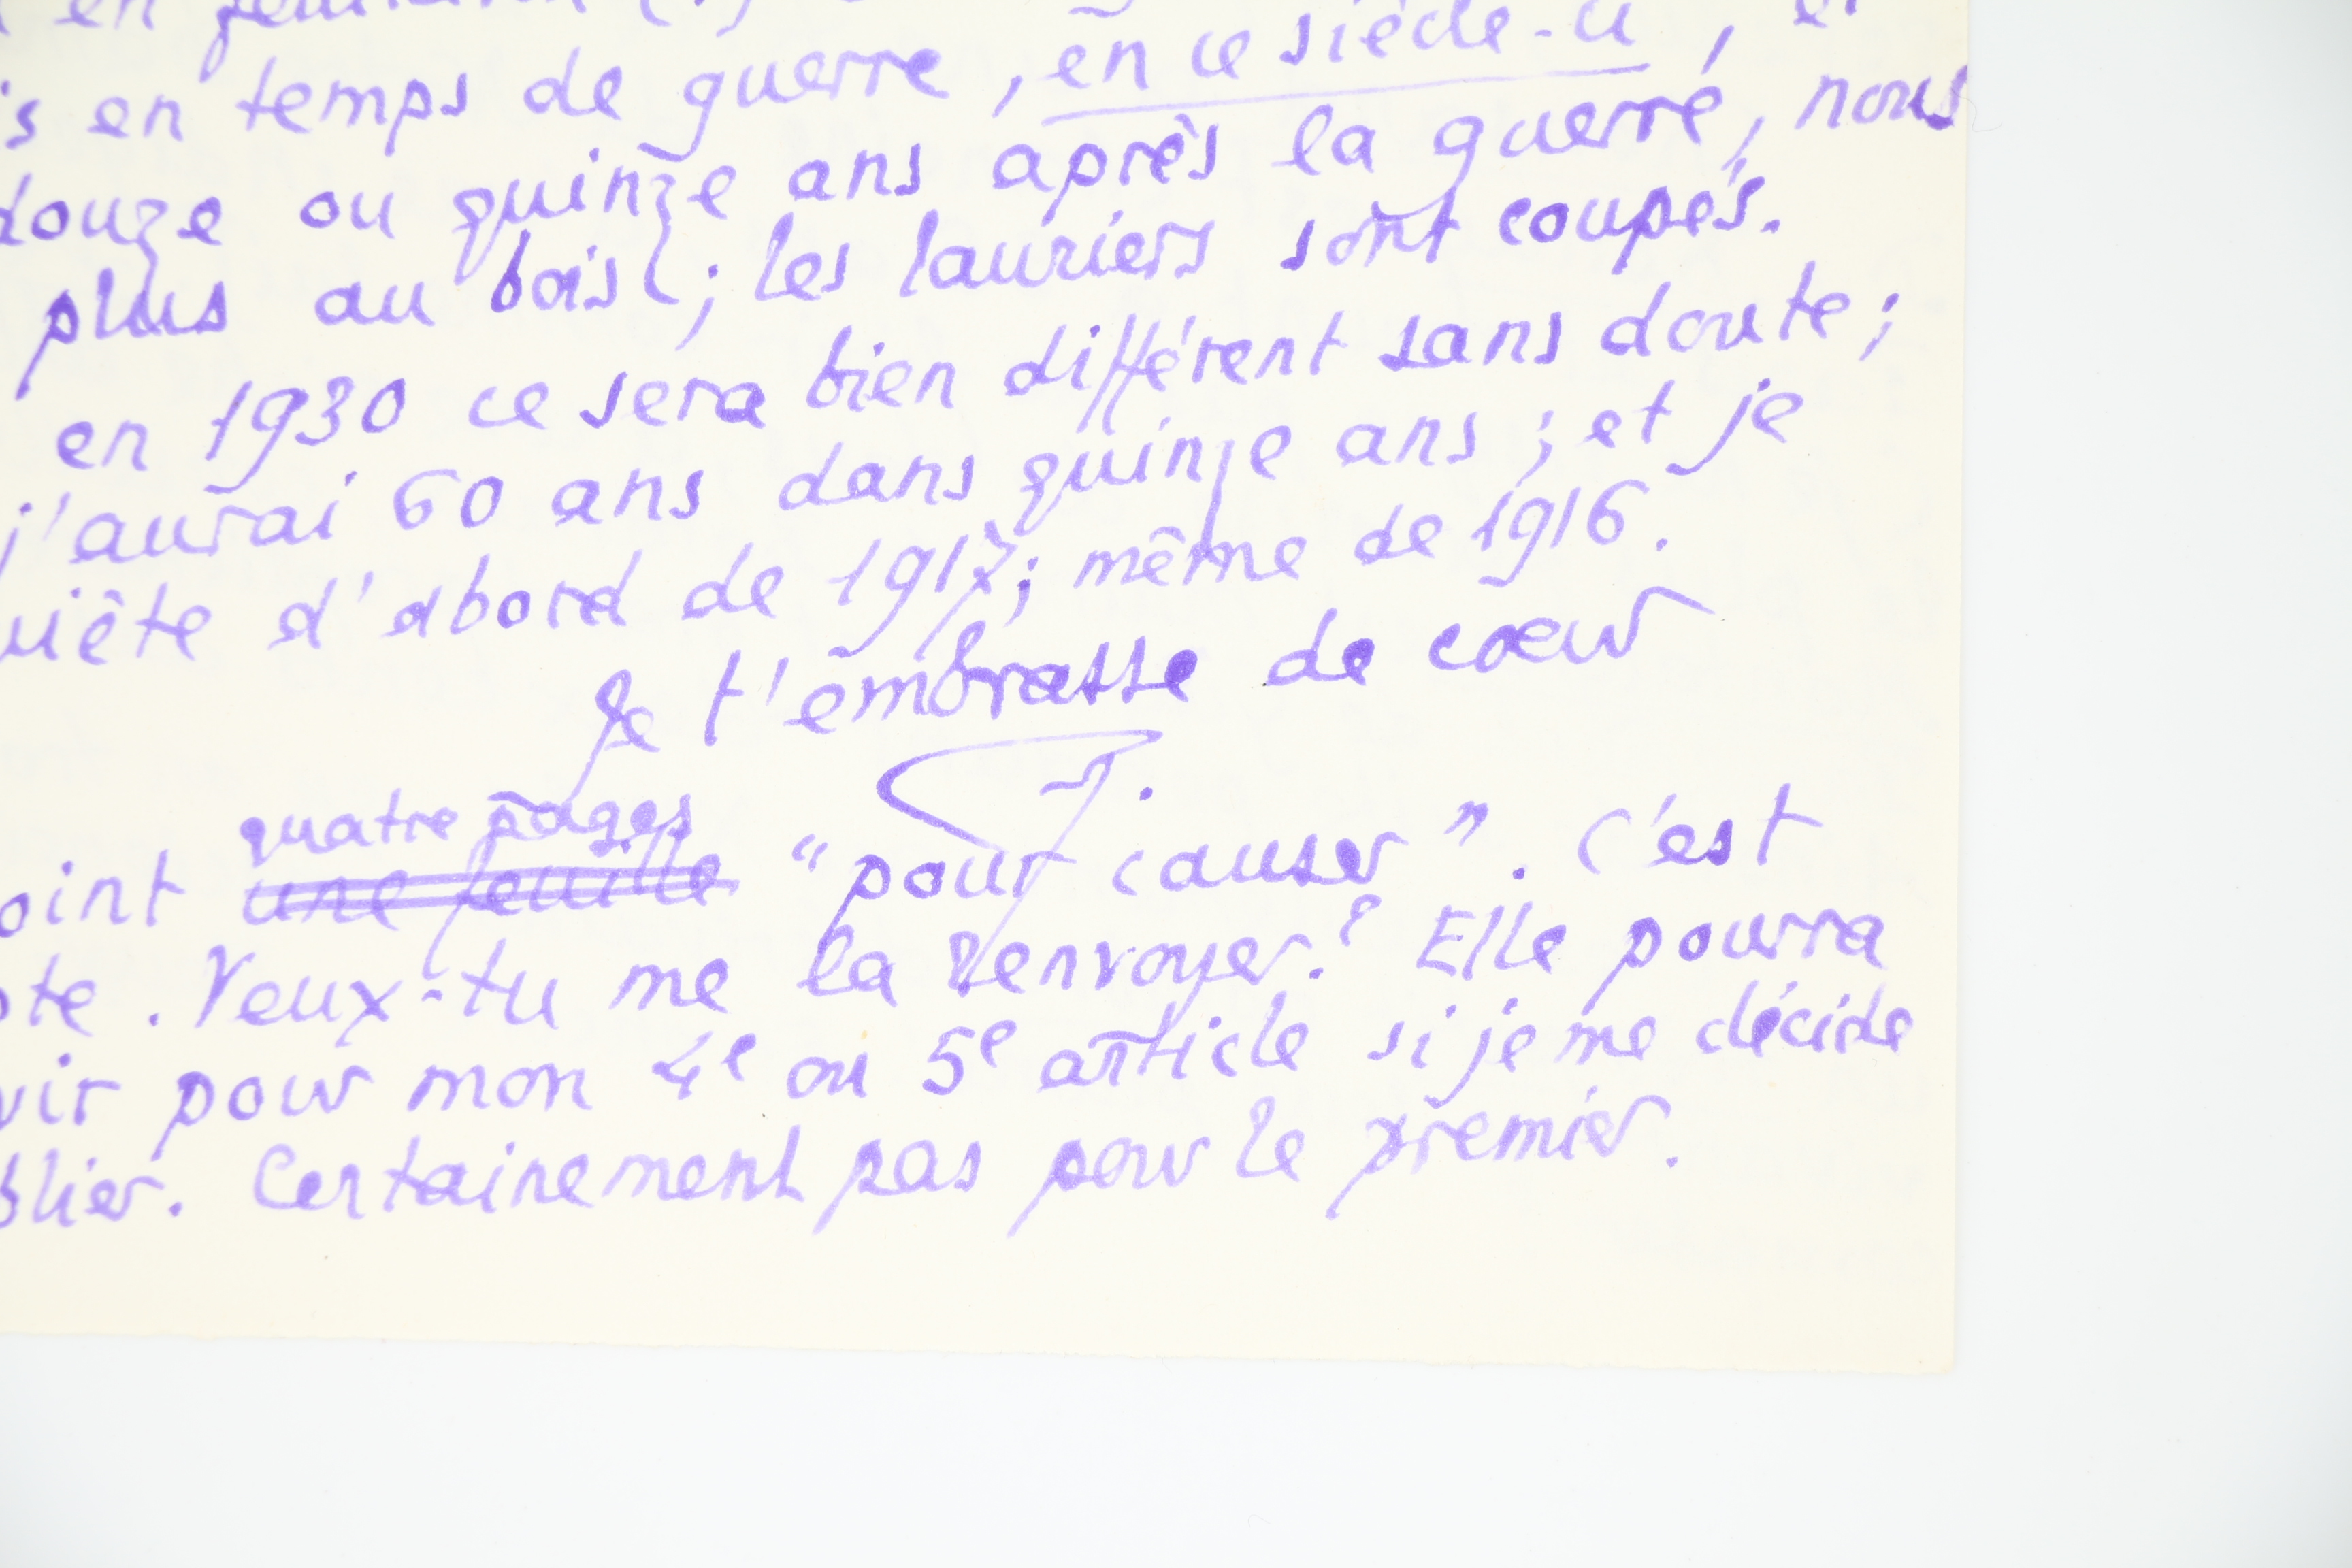 en feuilleton
is en temps de guerre, en ce siècle-ci, et
douze ou quinze ans après la guerre, nous
plus au bois ; les lauriers sont coupés.
en 1930 ce sera bien différent sans doute ;
j'aurai 60 ans dans quinze ans ; et je
uiête d'abord de 1917; même de 1916.
Je t'embrasse de cœur
J.
quatre pages
oint une feuille "pour causer". C'est
ote. Veux-tu me la renvoyer? Elle pourra
vir pour mon 4e ou 5e article si je me décide
blier. Certainement pas pour le premier.